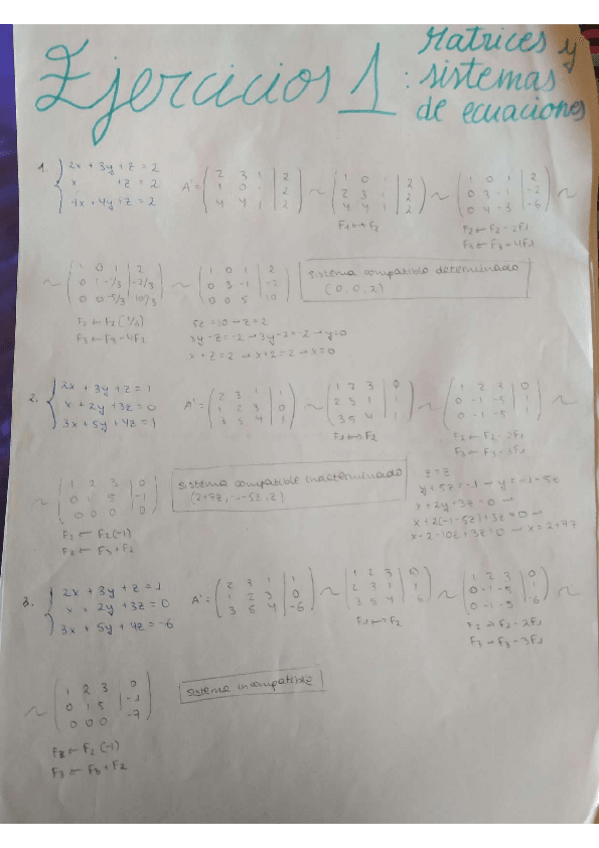 Ejercicios 1: Matrices y
sistemas
de ecuaciones
1. { 2x + 3y + z = 2
x + z = 2
4x + 4y + z = 2
A' = ( 2 3 1 | 2 ) ~ ( 1 0 1 | 2 ) ~ ( 1 0 1 | 2 ) ~
( 1 0 1 | 2 ) ( 2 3 1 | 2 ) ( 0 3 -1 | -2 )
( 4 4 1 | 2 ) ( 4 4 1 | 2 ) ( 0 4 -3 | -6 )
F1 ↔ F2
F2 ← F2 - 2F1
F3 ← F3 - 4F1
~ ( 1 0 1 | 2 ) ~ ( 1 0 1 | 2 )
( 0 1 -1/3 | -2/3 ) ( 0 3 -1 | -2 )
( 0 0 -5/3 | 10/3 ) ( 0 0 5 | 10 )
sistema compatible determinado
(0, 0, 2)
F2 ← F2 (1/3)
F3 ← F3 - 4F2
5z = 10 → z = 2
3y - z = -2 → 3y - 2 = -2 → y = 0
x + z = 2 → x + 2 = 2 → x = 0
2. { 2x + 3y + z = 1
x + 2y + 3z = 0
3x + 5y + 4z = 1
A' = ( 2 3 1 | 1 ) ~ ( 1 2 3 | 0 ) ~ ( 1 2 3 | 0 ) ~
( 1 2 3 | 0 ) ( 2 3 1 | 1 ) ( 0 -1 -5 | 1 )
( 3 5 4 | 1 ) ( 3 5 4 | 1 ) ( 0 -1 -5 | 1 )
F1 ↔ F2
F2 ← F2 - 2F1
F3 ← F3 - 3F1
~ ( 1 2 3 | 0 )
( 0 1 5 | -1 )
( 0 0 0 | 0 )
sistema compatible indeterminado
(2+7z, -1-5z, z)
F2 ← F2 (-1)
F3 ← F3 + F2
z = z
y + 5z = -1 → y = -1 - 5z
x + 2y + 3z = 0 →
x + 2(-1-5z) + 3z = 0 →
x - 2 - 10z + 3z = 0 → x = 2 + 7z
3. { 2x + 3y + z = 1
x + 2y + 3z = 0
3x + 5y + 4z = -6
A' = ( 2 3 1 | 1 ) ~ ( 1 2 3 | 0 ) ~ ( 1 2 3 | 0 ) ~
( 1 2 3 | 0 ) ( 2 3 1 | 1 ) ( 0 -1 -5 | 1 )
( 3 5 4 | -6 ) ( 3 5 4 | 6 ) ( 0 -1 -5 | -6 )
F1 ↔ F2
F2 → F2 - 2F1
F3 → F3 - 3F1
~ ( 1 2 3 | 0 )
( 0 1 5 | -1 )
( 0 0 0 | -7 )
sistema incompatible
F2 ← F2 (-1)
F3 ← F3 + F2